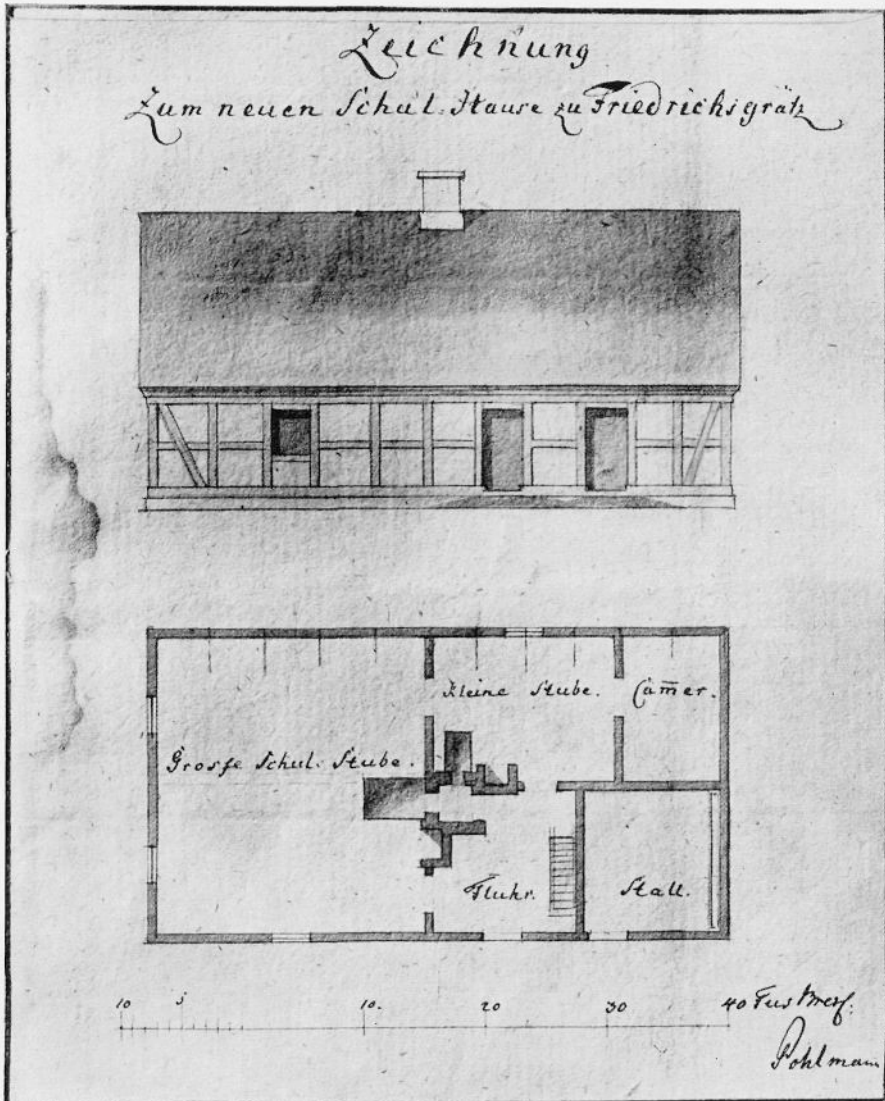 Zeichnung
Zum neuen Schul-Hause zu Friedrichsgrätz
Kleine Stube.
Cam̄er.
Grosse Schul-Stube.
Fluhr.
Stall.
10 5 10. 20 30 40 Fus Bresl:
Pohlmann